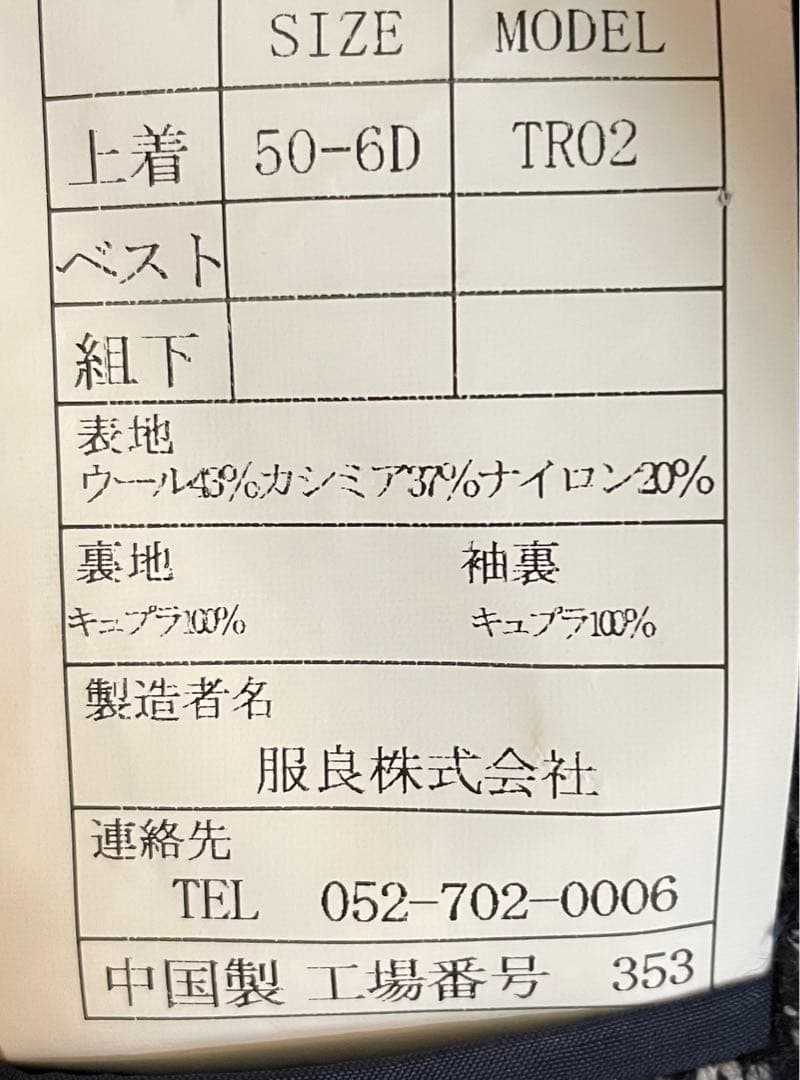 SIZE MODEL
上着 50-6D TR02
ベスト
組下
表地
ウール43%カシミア37%ナイロン20%
裏地 袖裏
キュプラ100% キュプラ100%
製造者名
服良株式会社
連絡先
TEL 052-702-0006
中国製 工場番号 353